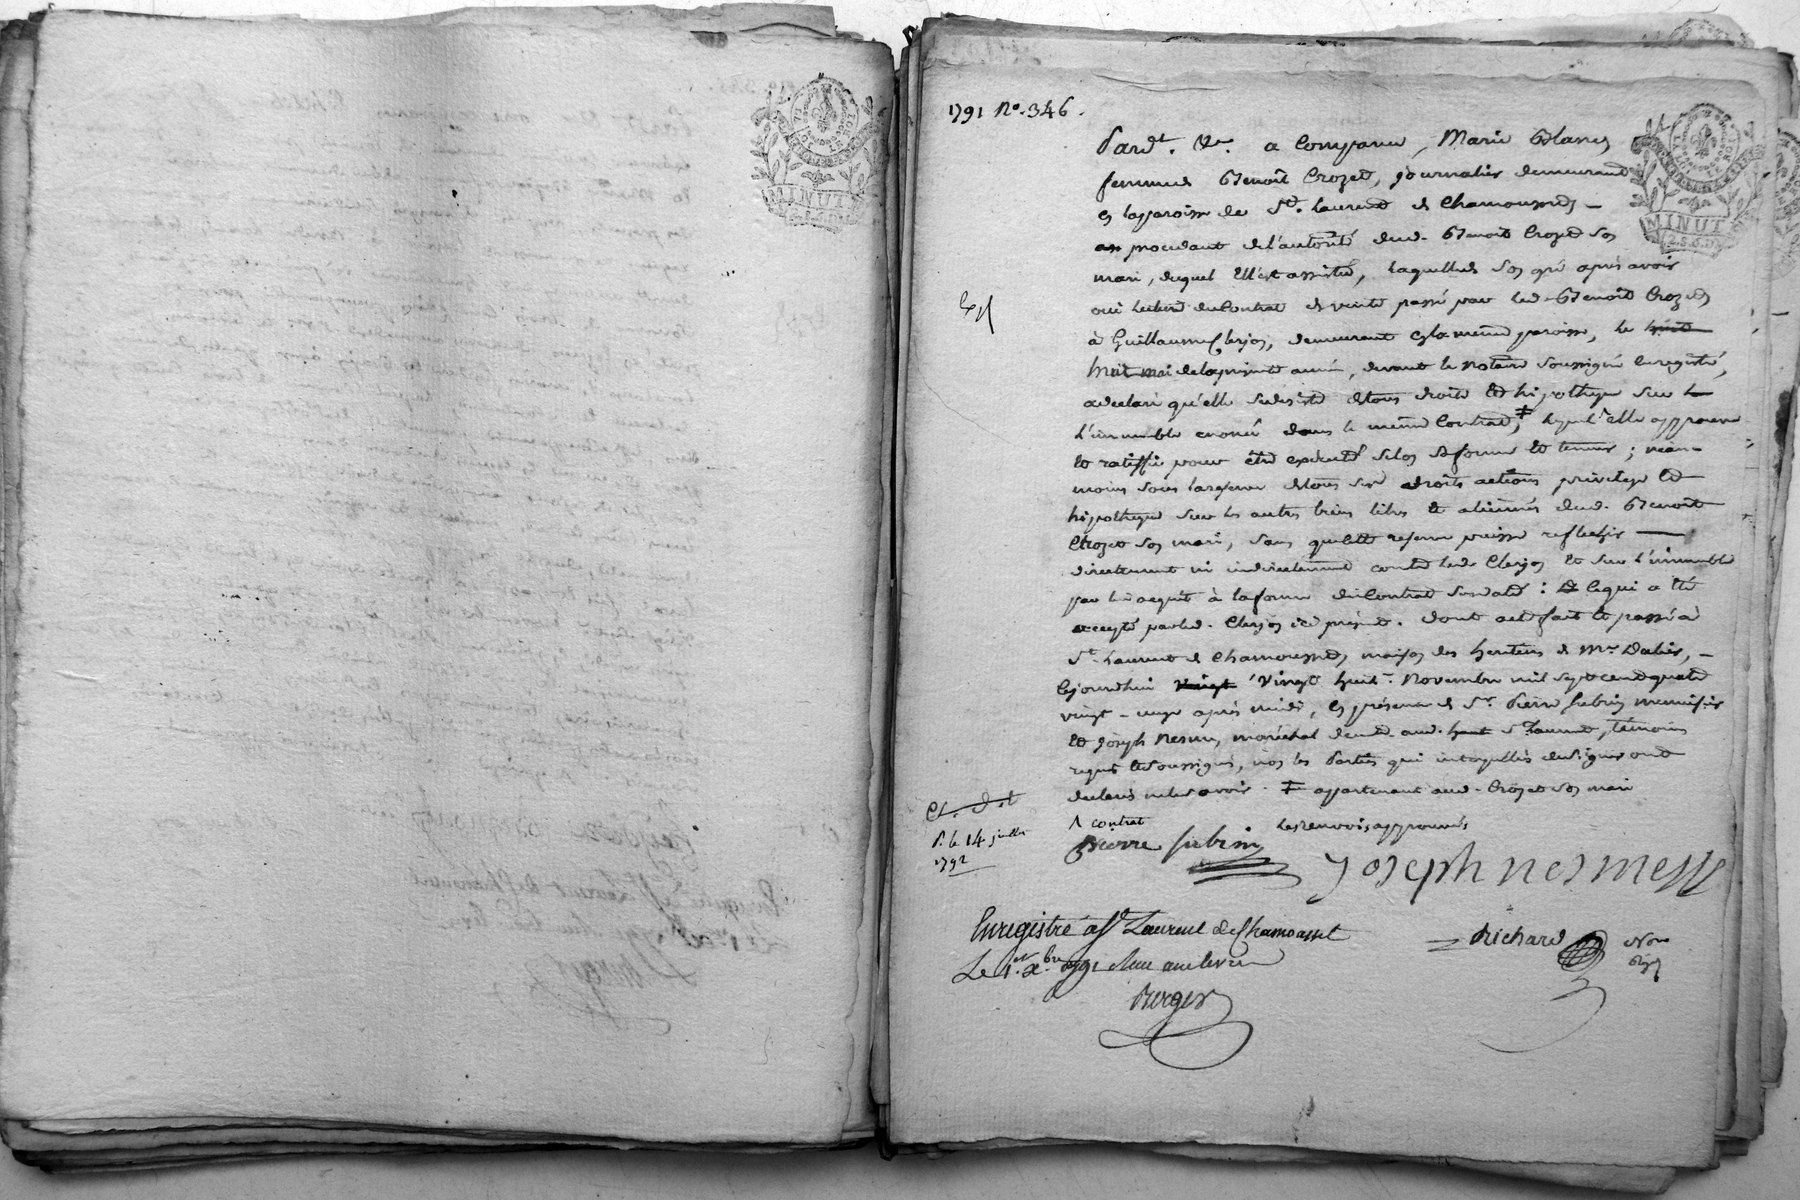 1791 No. 346.
Pardt. &c. a Comparu, Marie Blanc
femme de Benoît Crozet, journalier demeurant
en la paroisse de St. Laurent de Chamousset
procedant de l'autorité dud. Benoît Crozet son
mari, duquel Elle est assistée, laquelle de son gré après avoir
oui lecture du Contrat de vente passé par led. Benoît Crozet
à Guillaume Clerjon, demeurant en la même paroisse, le
huit mai de la presente année, devant le notaire soussigné Enregistré,
a declaré qu'elle se desiste de tous droits et hipotheque sur
l'immeuble enoncé dans le même Contrat, ‡ lequel elle approuve
et ratiffie pour être exécuté selon sa forme et teneur ; nean-
moins sous la reserve de tous ses droits actions privilege et
hipotheque sur les autres biens libres et alienés dud. Benoît
Crozet son mari, sans que cette reserve puisse reflechir
directement ni indirectement contre led. Clerjon et sur l'immeuble
par lui acquis à la forme du Contrat susdaté : Ce qui a été
accepté par led. Clerjon ici présent. Dont acte fait et passé à
St. Laurent de Chamousset, maison des heritiers de Mr.
Cejourdhui vingt huit. Novembre mil sept cent quatre
vingt-onze après midi, en présence de Sr. Pierre menuisier
et Joseph Nesme, maréchal demt. aud. St. Laurent, témoins
requis et soussignés, non les Parties qui interpellés de signer ont
declaré ne le savoir. ‡ appartenant aud. Crozet son mari
Λ contrat
Les renvois approuvés
Pierre
Joseph nesme
St. le 14 juillet
1792
Enregistré à St Laurent de Chamousset
Le 1er. Xbre 1791
Berger
Richard
Nore